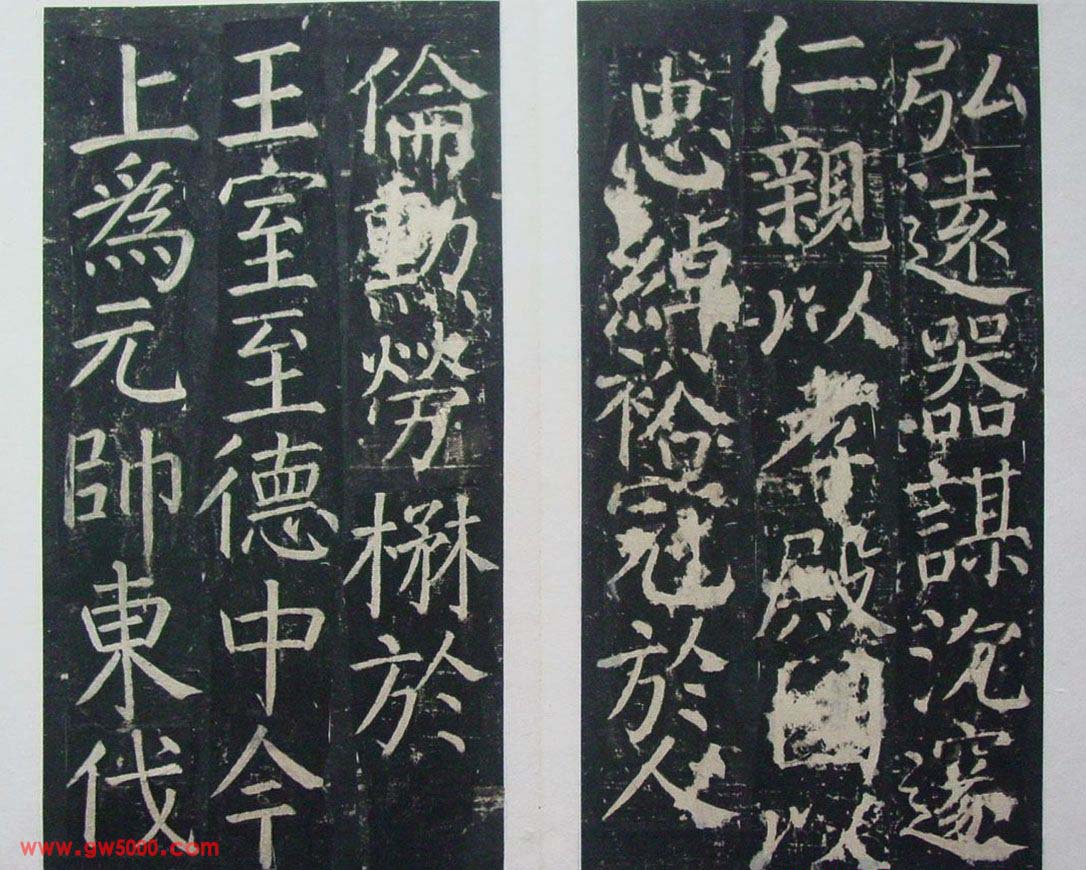 弘遠器謀沉邃
仁親以孝殿國以
忠綽裕冠於人
倫勳勞楙於
王室至德中今
上爲元帥東伐
www.gw5000.com